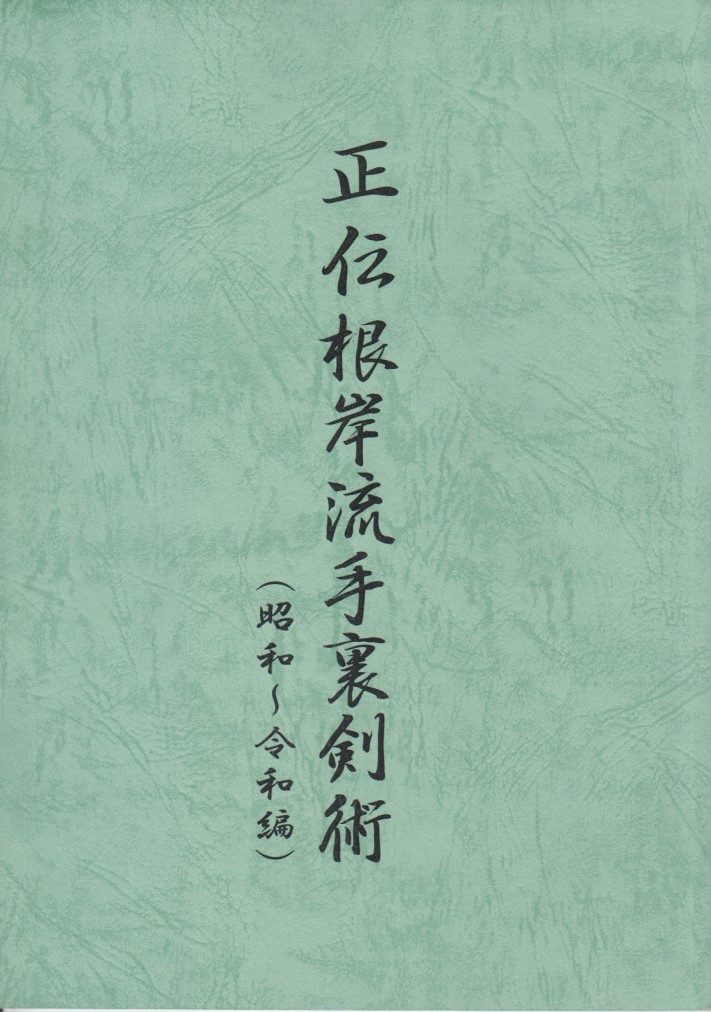 正伝根岸流手裏剣術
（昭和～令和編）